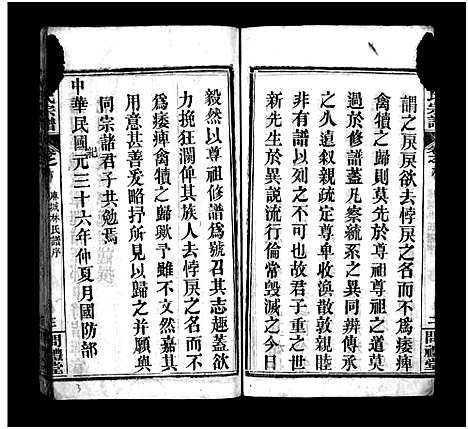 謂之戾戾欲去悖戾之名而不為痿痺
禽犢之歸則莫先於尊祖尊祖之道莫
過於修譜蓋凡察統系之異同辨傳承
之久遠叙親疏定尊卑收渙散敦親睦
非有譜以列之不可也故君子重之世
新先生於異説流行倫常毀滅之今日
毅然以尊祖修譜為號召其志趣蓋欲
力挽狂瀾俾其族人去悖戾之名而不
為痿痺禽犢之歸歟予雖不文然深其
用意甚善爰略抒所見以歸之并願與
同宗諸君子共勉焉
中華民國紀元三十六年仲夏月國防部
氏宗譜
林氏譜序
三
問禮堂
氏宗譜
二
問禮堂